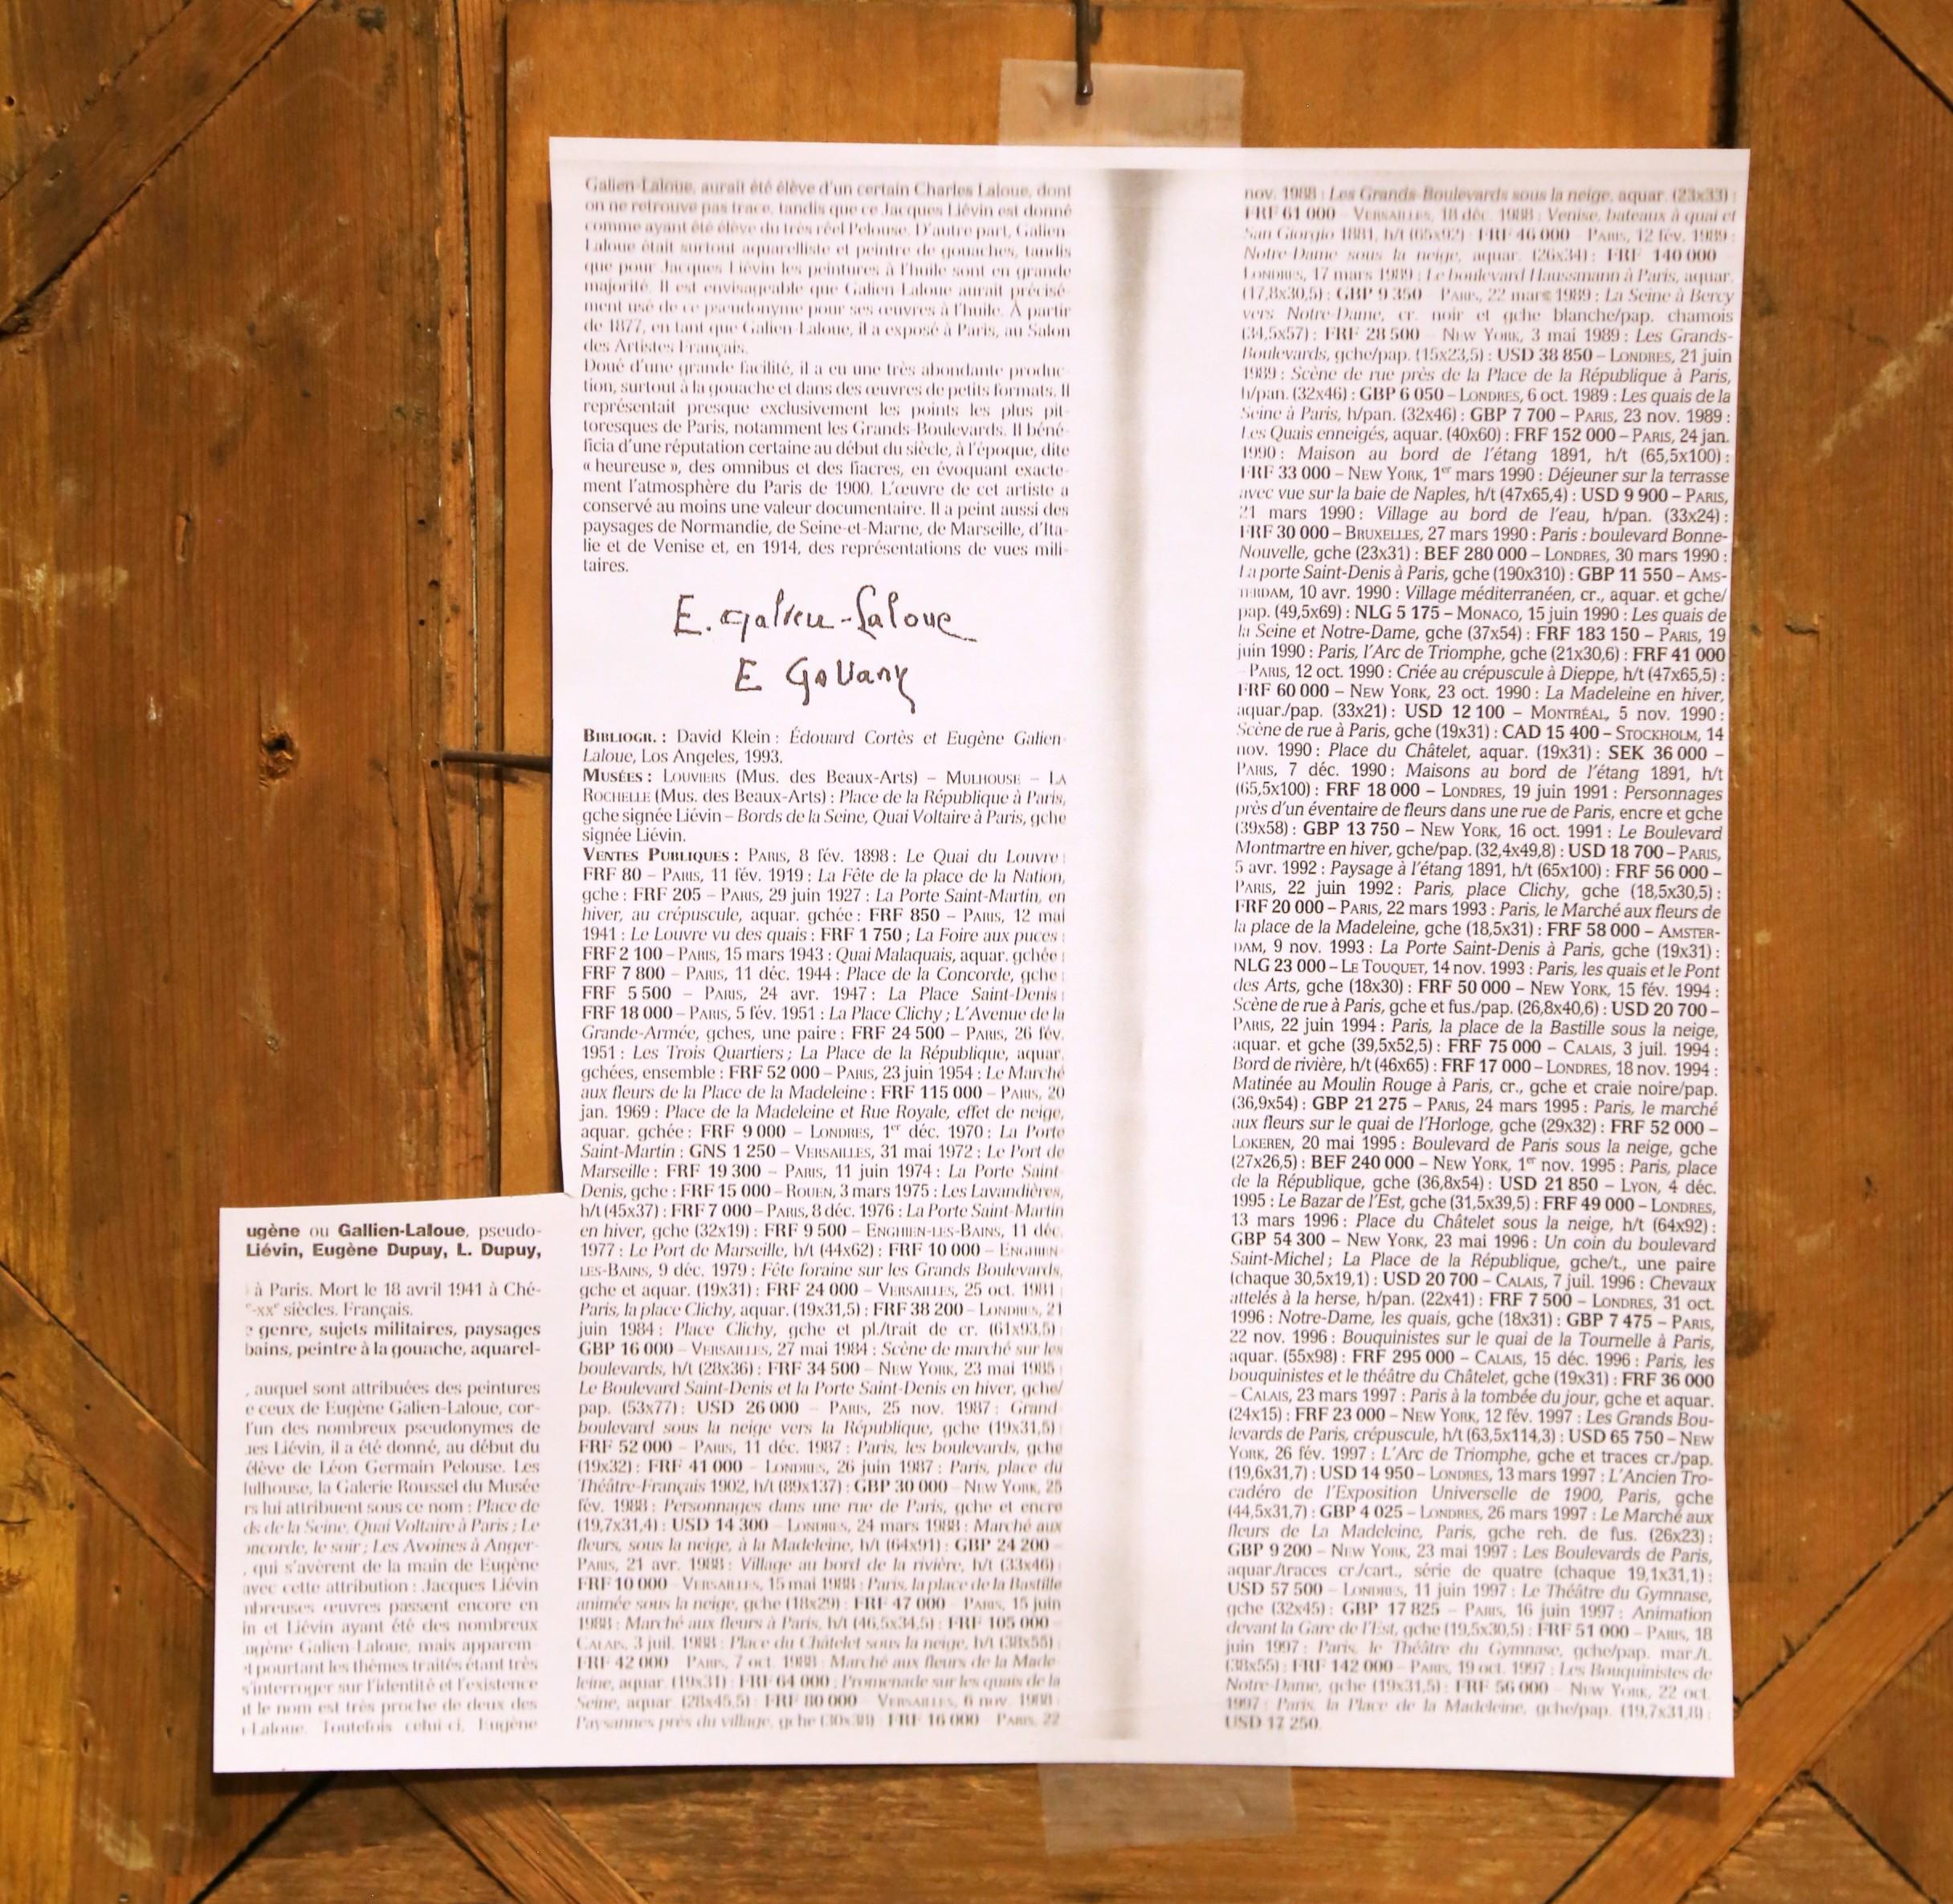 ugène ou Gallien-Laloue, pseudo-
Liévin, Eugène Dupuy, L. Dupuy,
à Paris. Mort le 18 avril 1941 à Ché-
-xxᵉ siècles. Français.
genre, sujets militaires, paysages
bains, peintre à la gouache, aquarel-
, auquel sont attribuées des peintures
e ceux de Eugène Galien-Laloue, cor-
l'un des nombreux pseudonymes de
ues Liévin, il a été donné, au début du
élève de Léon Germain Pelouse. Les
lulhouse, la Galerie Roussel du Musée
rs lui attribuent sous ce nom : Place de
ds de la Seine, Quai Voltaire à Paris ; Le
oncorde, le soir ; Les Avoines à Anger-
, qui s'avèrent de la main de Eugène
avec cette attribution : Jacques Liévin
nbreuses œuvres passent encore en
in et Liévin ayant été des nombreux
ugène Galien-Laloue, mais apparem-
t pourtant les thèmes traités étant très
s'interroger sur l'identité et l'existence
it le nom est très proche de deux des
Laloue. Toutefois celui-ci, Eugène
Galien-Laloue, aurait été élève d'un certain Charles Laloue, dont
on ne retrouve pas trace, tandis que ce Jacques Liévin est donné
comme ayant été élève du très réel Pelouse. D'autre part, Galien-
Laloue était surtout aquarelliste et peintre de gouaches, tandis
que pour Jacques Liévin les peintures à l'huile sont en grande
majorité. Il est envisageable que Galien-Laloue aurait précisé-
ment usé de ce pseudonyme pour ses œuvres à l'huile. À partir
de 1877, en tant que Galien-Laloue, il a exposé à Paris, au Salon
des Artistes Français.
Doué d'une grande facilité, il a eu une très abondante produc-
tion, surtout à la gouache et dans des œuvres de petits formats. Il
représentait presque exclusivement les points les plus pit-
toresques de Paris, notamment les Grands-Boulevards. Il béné-
ficia d'une réputation certaine au début du siècle, à l'époque, dite
« heureuse », des omnibus et des fiacres, en évoquant exacte-
ment l'atmosphère du Paris de 1900. L'œuvre de cet artiste a
conservé au moins une valeur documentaire. Il a peint aussi des
paysages de Normandie, de Seine-et-Marne, de Marseille, d'Ita-
lie et de Venise et, en 1914, des représentations de vues mili-
taires.
E. Galien-Laloue
E Galiany
BIBLIOGR. : David Klein : Édouard Cortès et Eugène Galien-
Laloue, Los Angeles, 1993.
MUSÉES : LOUVIERS (Mus. des Beaux-Arts) – MULHOUSE – LA
ROCHELLE (Mus. des Beaux-Arts) : Place de la République à Paris,
gche signée Liévin – Bords de la Seine, Quai Voltaire à Paris, gche
signée Liévin.
VENTES PUBLIQUES : PARIS, 8 fév. 1898 : Le Quai du Louvre :
FRF 80 – PARIS, 11 fév. 1919 : La Fête de la place de la Nation,
gche : FRF 205 – PARIS, 29 juin 1927 : La Porte Saint-Martin, en
hiver, au crépuscule, aquar. gchée : FRF 850 – PARIS, 12 mai
1941 : Le Louvre vu des quais : FRF 1 750 ; La Foire aux puces :
FRF 2 100 – PARIS, 15 mars 1943 : Quai Malaquais, aquar. gchée :
FRF 7 800 – PARIS, 11 déc. 1944 : Place de la Concorde, gche :
FRF 5 500 – PARIS, 24 avr. 1947 : La Place Saint-Denis :
FRF 18 000 – PARIS, 5 fév. 1951 : La Place Clichy ; L'Avenue de la
Grande-Armée, gches, une paire : FRF 24 500 – PARIS, 26 fév.
1951 : Les Trois Quartiers ; La Place de la République, aquar.
gchées, ensemble : FRF 52 000 – PARIS, 23 juin 1954 : Le Marché
aux fleurs de la Place de la Madeleine : FRF 115 000 – PARIS, 20
jan. 1969 : Place de la Madeleine et Rue Royale, effet de neige,
aquar. gchée : FRF 9 000 – LONDRES, 1er déc. 1970 : La Porte
Saint-Martin : GNS 1 250 – VERSAILLES, 31 mai 1972 : Le Port de
Marseille : FRF 19 300 – PARIS, 11 juin 1974 : La Porte Saint-
Denis, gche : FRF 15 000 – ROUEN, 3 mars 1975 : Les Lavandières,
h/t (45x37) : FRF 7 000 – PARIS, 8 déc. 1976 : La Porte Saint-Martin
en hiver, gche (32x19) : FRF 9 500 – ENGHIEN-LES-BAINS, 11 déc.
1977 : Le Port de Marseille, h/t (44x62) : FRF 10 000 – ENGHIEN-
LES-BAINS, 9 déc. 1979 : Fête foraine sur les Grands Boulevards,
gche et aquar. (19x31) : FRF 24 000 – VERSAILLES, 25 oct. 1981
Paris, la place Clichy, aquar. (19x31,5) : FRF 38 200 – LONDRES, 21
juin 1984 : Place Clichy, gche et pl./trait de cr. (61x93,5) :
GBP 16 000 – VERSAILLES, 27 mai 1984 : Scène de marché sur les
boulevards, h/t (28x36) : FRF 34 500 – NEW YORK, 23 mai 1985 :
Le Boulevard Saint-Denis et la Porte Saint-Denis en hiver, gche/
pap. (53x77) : USD 26 000 – PARIS, 25 nov. 1987 : Grand
boulevard sous la neige vers la République, gche (19x31,5) :
FRF 52 000 – PARIS, 11 déc. 1987 : Paris, les boulevards, gche
(19x32) : FRF 41 000 – LONDRES, 26 juin 1987 : Paris, place du
Théâtre-Français 1902, h/t (89x137) : GBP 30 000 – NEW YORK, 25
fév. 1988 : Personnages dans une rue de Paris, gche et encre
(19,7x31,4) : USD 14 300 – LONDRES, 24 mars 1988 : Marché aux
fleurs, sous la neige, à la Madeleine, h/t (64x91) : GBP 24 200 –
PARIS, 21 avr. 1988 : Village au bord de la rivière, h/t (33x46) :
FRF 10 000 – VERSAILLES, 15 mai 1988 : Paris, la place de la Bastille
animée sous la neige, gche (18x29) : FRF 47 000 – PARIS, 15 juin
1988 : Marché aux fleurs à Paris, h/t (46,5x34,5) : FRF 105 000 –
CALAIS, 3 juil. 1988 : Place du Châtelet sous la neige, h/t (38x55) :
FRF 42 000 – PARIS, 7 oct. 1988 : Marché aux fleurs de la Made-
leine, aquar (19x31) : FRF 64 000 ; Promenade sur les quais de la
Seine, aquar (28x45,5) : FRF 80 000 – VERSAILLES, 6 nov. 1988 :
Paysannes près du village, gche (30x38) : FRF 16 000 – PARIS, 22
nov. 1988 : Les Grands-Boulevards sous la neige, aquar. (23x33) :
FRF 61 000 – VERSAILLES, 18 déc. 1988 : Venise, bateaux à quai et
San Giorgio 1881, h/t (65x92) : FRF 46 000 – PARIS, 12 fév. 1989 :
Notre-Dame sous la neige, aquar. (26x34) : FRF 140 000 –
LONDRES, 17 mars 1989 : Le boulevard Haussmann à Paris, aquar.
(17,8x30,5) : GBP 9 350 – PARIS, 22 mars 1989 : La Seine à Bercy
vers Notre-Dame, cr. noir et gche blanche/pap. chamois
(34,5x57) : FRF 28 500 – NEW YORK, 3 mai 1989 : Les Grands-
Boulevards, gche/pap. (15x23,5) : USD 38 850 – LONDRES, 21 juin
1989 : Scène de rue près de la Place de la République à Paris,
h/pan. (32x46) : GBP 6 050 – LONDRES, 6 oct. 1989 : Les quais de la
Seine à Paris, h/pan. (32x46) : GBP 7 700 – PARIS, 23 nov. 1989 :
Les Quais enneigés, aquar. (40x60) : FRF 152 000 – PARIS, 24 jan.
1990 : Maison au bord de l'étang 1891, h/t (65,5x100) :
FRF 33 000 – NEW YORK, 1er mars 1990 : Déjeuner sur la terrasse
avec vue sur la baie de Naples, h/t (47x65,4) : USD 9 900 – PARIS,
21 mars 1990 : Village au bord de l'eau, h/pan. (33x24) :
FRF 30 000 – BRUXELLES, 27 mars 1990 : Paris : boulevard Bonne-
Nouvelle, gche (23x31) : BEF 280 000 – LONDRES, 30 mars 1990 :
La porte Saint-Denis à Paris, gche (190x310) : GBP 11 550 – AMS-
TERDAM, 10 avr. 1990 : Village méditerranéen, cr., aquar. et gche/
pap. (49,5x69) : NLG 5 175 – MONACO, 15 juin 1990 : Les quais de
la Seine et Notre-Dame, gche (37x54) : FRF 183 150 – PARIS, 19
juin 1990 : Paris, l'Arc de Triomphe, gche (21x30,6) : FRF 41 000
– PARIS, 12 oct. 1990 : Criée au crépuscule à Dieppe, h/t (47x65,5) :
FRF 60 000 – NEW YORK, 23 oct. 1990 : La Madeleine en hiver,
aquar./pap. (33x21) : USD 12 100 – MONTRÉAL, 5 nov. 1990 :
Scène de rue à Paris, gche (19x31) : CAD 15 400 – STOCKHOLM, 14
nov. 1990 : Place du Châtelet, aquar. (19x31) : SEK 36 000 –
PARIS, 7 déc. 1990 : Maisons au bord de l'étang 1891, h/t
(65,5x100) : FRF 18 000 – LONDRES, 19 juin 1991 : Personnages
près d'un éventaire de fleurs dans une rue de Paris, encre et gche
(39x58) : GBP 13 750 – NEW YORK, 16 oct. 1991 : Le Boulevard
Montmartre en hiver, gche/pap. (32,4x49,8) : USD 18 700 – PARIS,
5 avr. 1992 : Paysage à l'étang 1891, h/t (65x100) : FRF 56 000 –
PARIS, 22 juin 1992 : Paris, place Clichy, gche (18,5x30,5) :
FRF 20 000 – PARIS, 22 mars 1993 : Paris, le Marché aux fleurs de
la place de la Madeleine, gche (18,5x31) : FRF 58 000 – AMSTER-
DAM, 9 nov. 1993 : La Porte Saint-Denis à Paris, gche (19x31) :
NLG 23 000 – LE TOUQUET, 14 nov. 1993 : Paris, les quais et le Pont
des Arts, gche (18x30) : FRF 50 000 – NEW YORK, 15 fév. 1994 :
Scène de rue à Paris, gche et fus./pap. (26,8x40,6) : USD 20 700 –
PARIS, 22 juin 1994 : Paris, la place de la Bastille sous la neige,
aquar. et gche (39,5x52,5) : FRF 75 000 – CALAIS, 3 juil. 1994 :
Bord de rivière, h/t (46x65) : FRF 17 000 – LONDRES, 18 nov. 1994 :
Matinée au Moulin Rouge à Paris, cr., gche et craie noire/pap.
(36,9x54) : GBP 21 275 – PARIS, 24 mars 1995 : Paris, le marché
aux fleurs sur le quai de l'Horloge, gche (29x32) : FRF 52 000 –
LOKEREN, 20 mai 1995 : Boulevard de Paris sous la neige, gche
(27x26,5) : BEF 240 000 – NEW YORK, 1er nov. 1995 : Paris, place
de la République, gche (36,8x54) : USD 21 850 – LYON, 4 déc.
1995 : Le Bazar de l'Est, gche (31,5x39,5) : FRF 49 000 – LONDRES,
13 mars 1996 : Place du Châtelet sous la neige, h/t (64x92) :
GBP 54 300 – NEW YORK, 23 mai 1996 : Un coin du boulevard
Saint-Michel ; La Place de la République, gche/t., une paire
(chaque 30,5x19,1) : USD 20 700 – CALAIS, 7 juil. 1996 : Chevaux
attelés à la herse, h/pan. (22x41) : FRF 7 500 – LONDRES, 31 oct.
1996 : Notre-Dame, les quais, gche (18x31) : GBP 7 475 – PARIS,
22 nov. 1996 : Bouquinistes sur le quai de la Tournelle à Paris,
aquar. (55x98) : FRF 295 000 – CALAIS, 15 déc. 1996 : Paris, les
bouquinistes et le théâtre du Châtelet, gche (19x31) : FRF 36 000
– CALAIS, 23 mars 1997 : Paris à la tombée du jour, gche et aquar.
(24x15) : FRF 23 000 – NEW YORK, 12 fév. 1997 : Les Grands Bou-
levards de Paris, crépuscule, h/t (63,5x114,3) : USD 65 750 – NEW
YORK, 26 fév. 1997 : L'Arc de Triomphe, gche et traces cr./pap.
(19,6x31,7) : USD 14 950 – LONDRES, 13 mars 1997 : L'Ancien Tro-
cadéro de l'Exposition Universelle de 1900, Paris, gche
(44,5x31,7) : GBP 4 025 – LONDRES, 26 mars 1997 : Le Marché aux
fleurs de La Madeleine, Paris, gche reh. de fus. (26x23) :
GBP 9 200 – NEW YORK, 23 mai 1997 : Les Boulevards de Paris,
aquar./traces cr./cart., série de quatre (chaque 19,1x31,1) :
USD 57 500 – LONDRES, 11 juin 1997 : Le Théâtre du Gymnase,
gche (32x45) : GBP 17 825 – PARIS, 16 juin 1997 : Animation
devant la Gare de l'Est, gche (19,5x30,5) : FRF 51 000 – PARIS, 18
juin 1997 : Paris, le Théâtre du Gymnase, gche/pap. mar./t.
(38x55) : FRF 142 000 – PARIS, 19 oct. 1997 : Les Bouquinistes de
Notre-Dame, gche (19x31,5) : FRF 56 000 – NEW YORK, 22 oct.
1997 : Paris, la Place de la Madeleine, gche/pap. (19,7x31,8) :
USD 17 250.